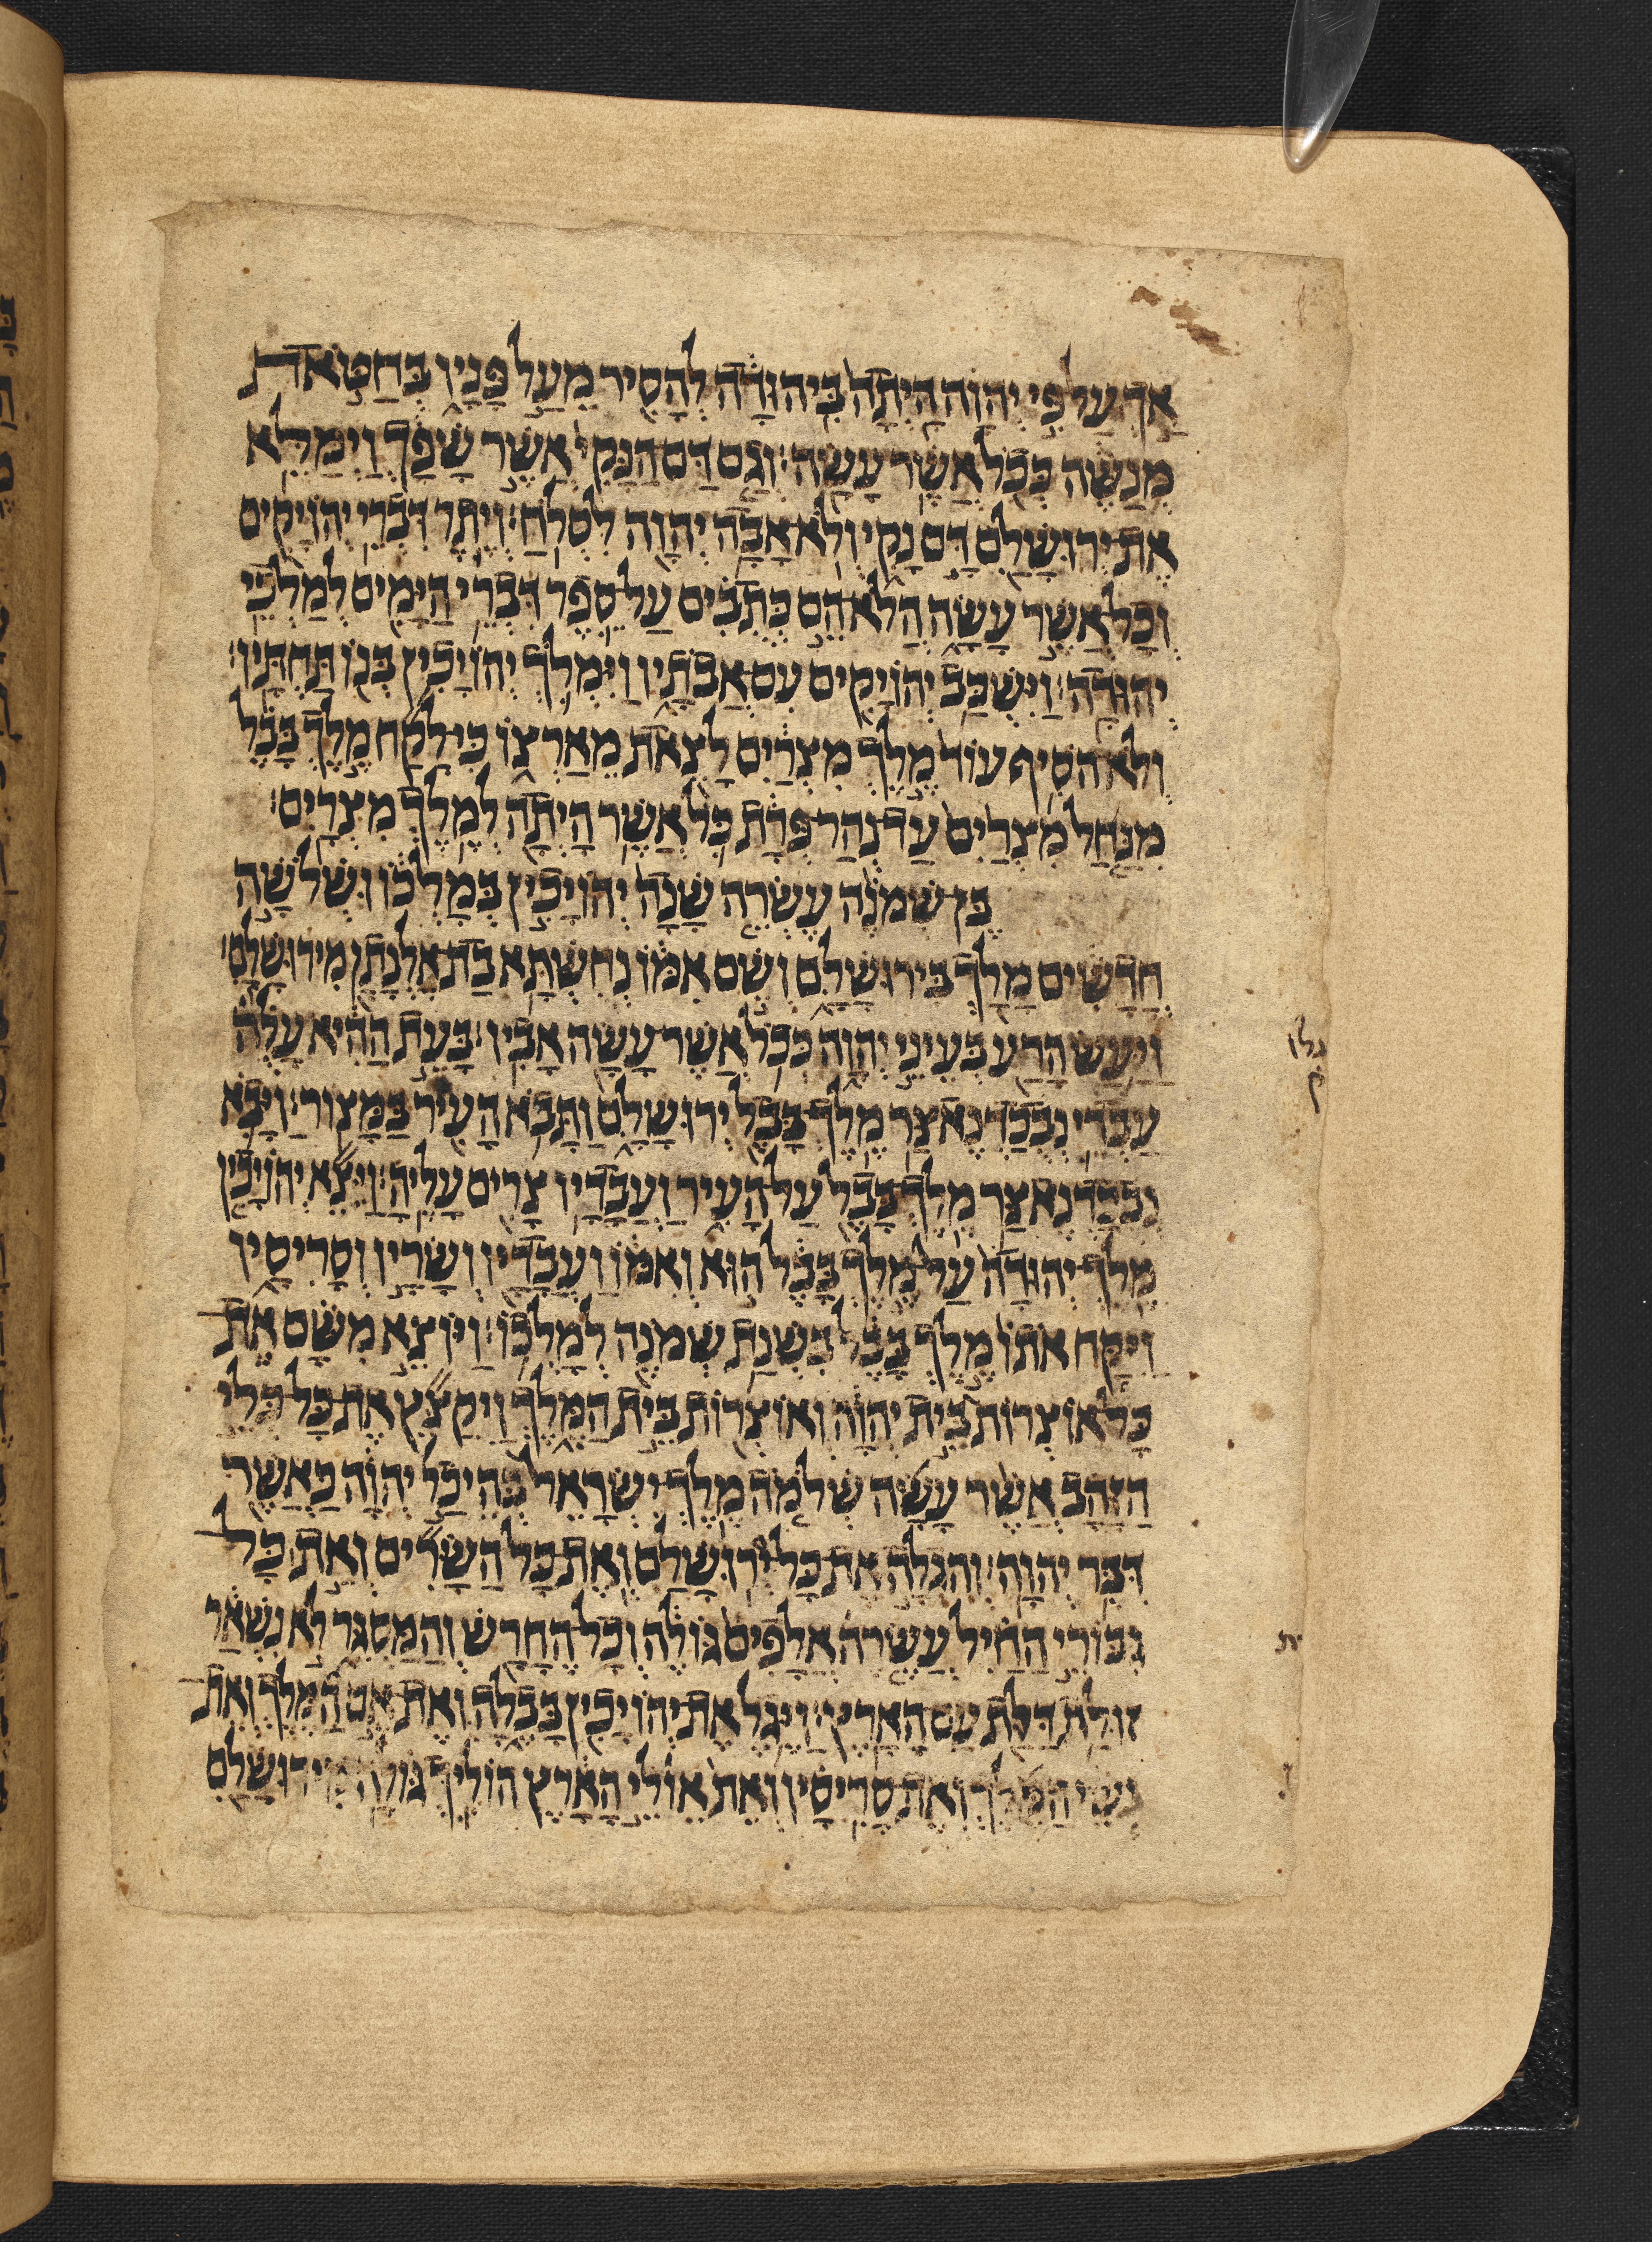 אַךְ עַל פִּי יְהוָה הָיְתָה בִּיהוּדָה לְהָסִיר מֵעַל פָּנָיו בְּחַטֹּאת
מְנַשֶּׁה כְּכֹל אֲשֶׁר עָשָׂה׃ וְגַם דַּם הַנָּקִי אֲשֶׁר שָׁפָךְ וַיְמַלֵּא
אֶת יְרוּשָׁלִַם דָּם נָקִי וְלֹא אָבָה יְהוָה לִסְלֹחַ׃ וְיֶתֶר דִּבְרֵי יְהוֹיָקִים
וְכָל אֲשֶׁר עָשָׂה הֲלֹא הֵם כְּתֻבִים עַל סֵפֶר דִּבְרֵי הַיָּמִים לְמַלְכֵי
יְהוּדָה׃ וַיִּשְׁכַּב יְהוֹיָקִים עִם אֲבֹתָיו וַיִּמְלֹךְ יְהוֹיָכִין בְּנוֹ תַּחְתָּיו׃
וְלֹא הֹסִיף עוֹד מֶלֶךְ מִצְרַיִם לָצֵאת מֵאַרְצוֹ כִּי לָקַח מֶלֶךְ בָּבֶל
מִנַּחַל מִצְרַיִם עַד נְהַר פְּרָת כֹּל אֲשֶׁר הָיְתָה לְמֶלֶךְ מִצְרָיִם׃
בֶּן שְׁמֹנֶה עֶשְׂרֵה שָׁנָה יְהוֹיָכִין בְּמָלְכוֹ וּשְׁלֹשָׁה
חֳדָשִׁים מָלַךְ בִּירוּשָׁלִָם וְשֵׁם אִמּוֹ נְחֻשְׁתָּא בַת אֶלְנָתָן מִירוּשָׁלִָם׃
וַיַּעַשׂ הָרַע בְּעֵינֵי יְהוָה כְּכֹל אֲשֶׁר עָשָׂה אָבִיו׃ בָּעֵת הַהִיא עָלֹה
עַבְדֵי נְבֻכַדְנֶאצַּר מֶלֶךְ בָּבֶל יְרוּשָׁלִָם וַתָּבֹא הָעִיר בַּמָּצוֹר׃ וַיָּבֹא
נְבֻכַדְנֶאצַּר מֶלֶךְ בָּבֶל עַל הָעִיר וַעֲבָדָיו צָרִים עָלֶיהָ׃ וַיֵּצֵא יְהוֹיָכִין
מֶלֶךְ יְהוּדָה עַל מֶלֶךְ בָּבֶל הוּא וְאִמּוֹ וַעֲבָדָיו וְשָׂרָיו וְסָרִיסָיו
וַיִּקַּח אֹתוֹ מֶלֶךְ בָּבֶל בִּשְׁנַת שְׁמֹנֶה לְמָלְכוֹ׃ וַיּוֹצֵא מִשָּׁם אֶת
כָּל אוֹצְרוֹת בֵּית יְהוָה וְאוֹצְרוֹת בֵּית הַמֶּלֶךְ וַיְקַצֵּץ אֶת כָּל כְּלֵי
הַזָּהָב אֲשֶׁר עָשָׂה שְׁלֹמֹה מֶלֶךְ יִשְׂרָאֵל בְּהֵיכַל יְהוָה כַּאֲשֶׁר
דִּבֶּר יְהוָה׃ וְהִגְלָה אֶת כָּל יְרוּשָׁלִַם וְאֶת כָּל הַשָּׂרִים וְאֵת כָּל
גִּבּוֹרֵי הַחַיִל עֲשֶׂרָה אֲלָפִים גּוֹלֶה וְכָל הֶחָרָשׁ וְהַמַּסְגֵּר לֹא נִשְׁאַר
זוּלַת דַּלַּת עַם הָאָרֶץ׃ וַיֶּגֶל אֶת יְהוֹיָכִין בָּבֶלָה וְאֶת אֵם הַמֶּלֶךְ וְאֶת
נְשֵׁי הַמֶּלֶךְ וְאֶת סָרִיסָיו וְאֵת אֱוִלֵי הָאָרֶץ הוֹלִיךְ גּוֹלָה מִירוּשָׁלִַם